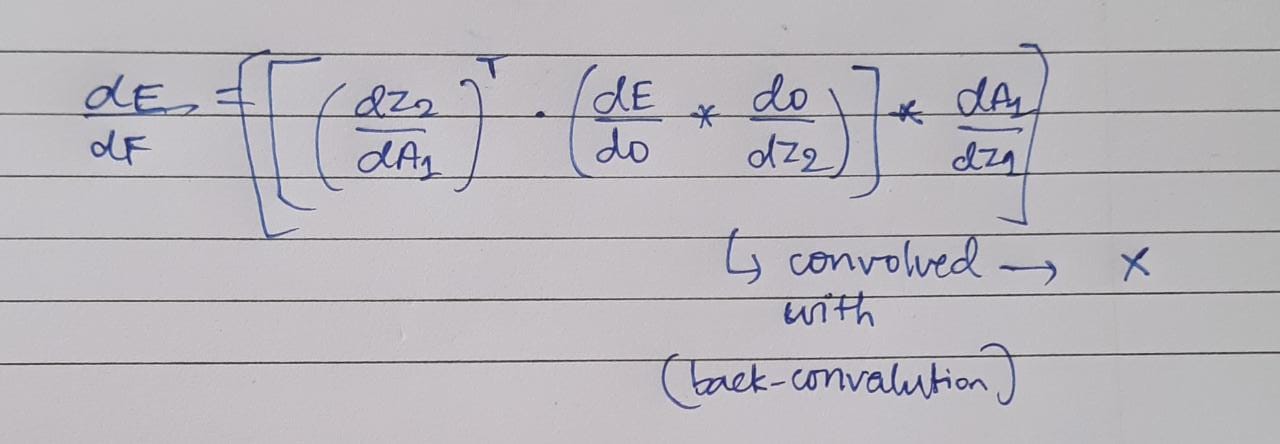 dE/dF = [[(dZ2/dA1)^T . (dE/dO * dO/dZ2)] * dA1/dZ1]
↳ convolved → X
with
(back-convalution)